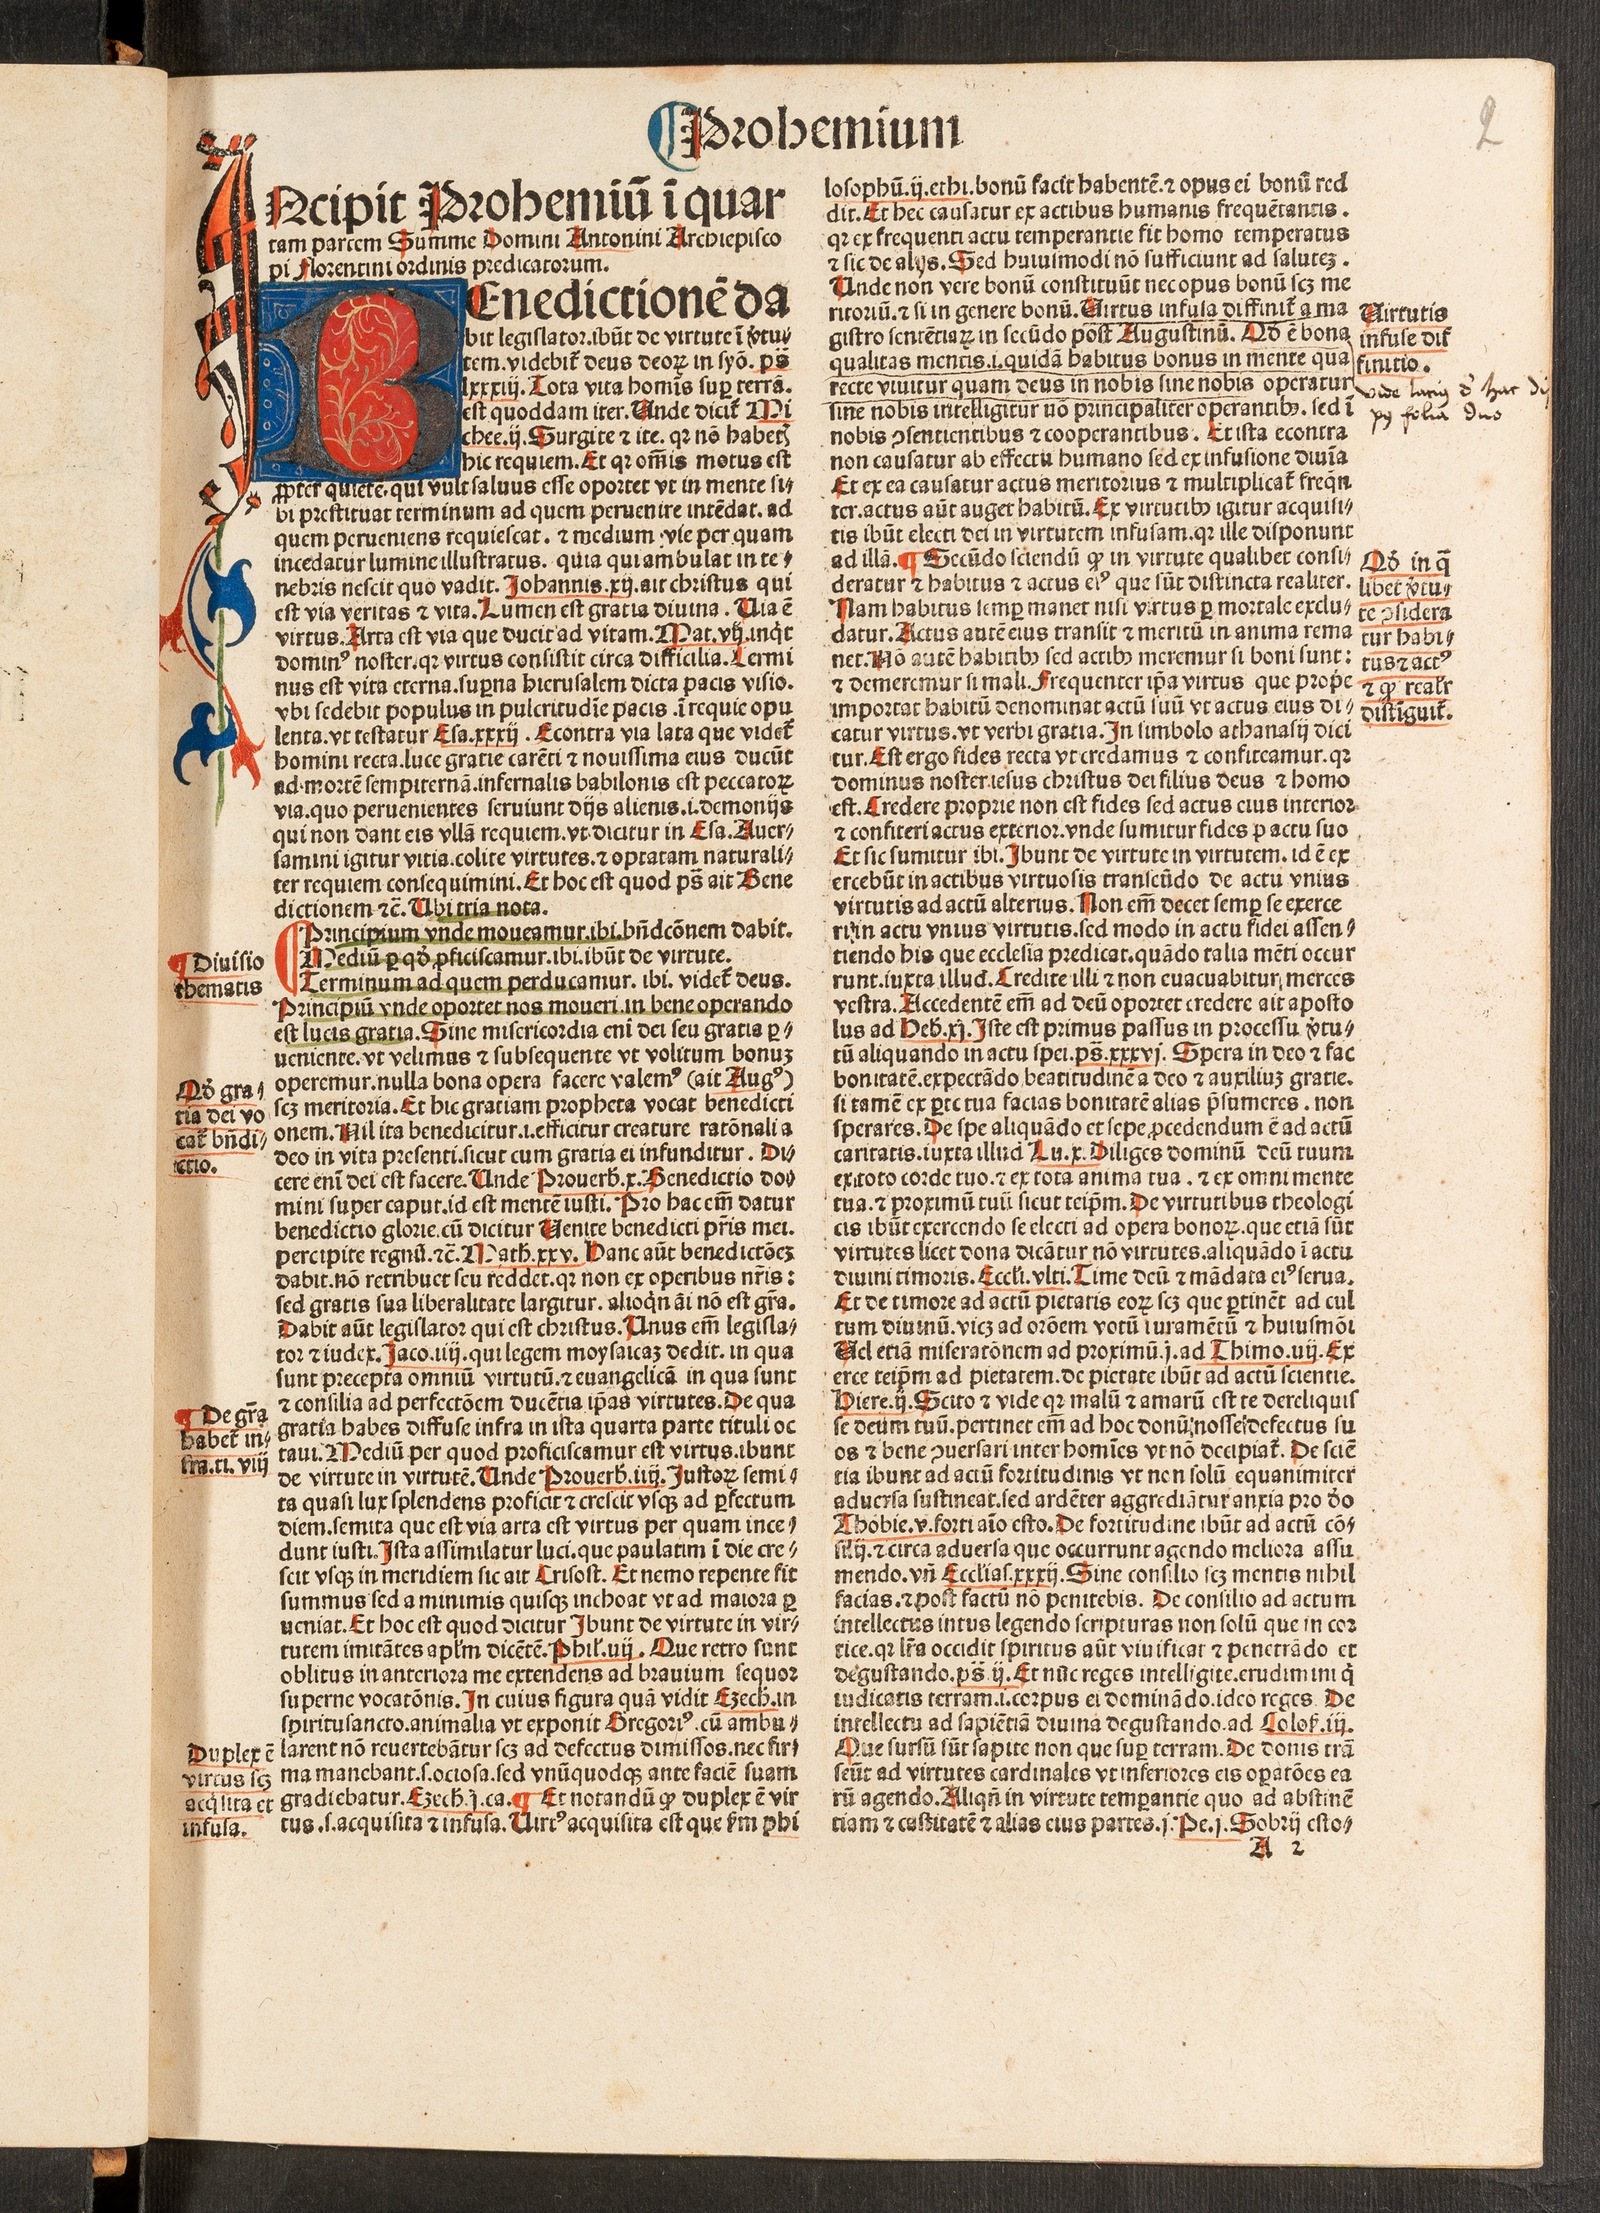 Prohemium
2
INcipit Prohemiū ī quar
tam partem Summe Domini Antonini Archiepisco
pi florentini ordinis predicatorum.
BEnedictionē da
bit legislator.ibūt de virtute ī v̓tu⸗
tem.videbit̄ deus deoꝝ in syō. ps̄
lxxxiij. Tota vita homīs suꝑ terrā.
est quoddam iter. Unde dicit̄ Mi
chee.ij. Surgite ⁊ ite. qꝛ nō habetꝭ
hic requiem. Et qꝛ om̄is motus est
ꝓpter quietē. qui vult saluus esse oportet vt in mente si⸗
bi prestituat terminum ad quem peruenire intēdat. ad
quem perueniens requiescat. ⁊ medium vie per quam
incedatur lumine illustratus. quia qui ambulat in te⸗
nebris nescit quo vadit. Johannis.xij. ait christus qui
est via veritas ⁊ vita. Lumen est gratia diuina. Uia ē
virtus. Arta est via que ducit ad vitam. Mat.vij. inq̇t
dominꝰ noster. qꝛ virtus consistit circa difficilia. Termi
nus est vita eterna. suꝑna hierusalem dicta pacis visio.
vbi sedebit populus in pulcritudīe pacis. ī requie opu
lenta. vt testatur Esa.xxxij. Econtra via lata que videt̄
homini recta. luce gratie carēti ⁊ nouissima eius ducūt
ad mortē sempiternā. infernalis babilonis est peccatoꝝ
via. quo peruenientes seruiunt dijs alienis.i.demonijs
qui non dant eis vllā requiem. vt dicitur in Esa. Auer⸗
samini igitur vitia. colite virtutes. ⁊ optatam naturali⸗
ter requiem consequimini. Et hoc est quod ps̄ ait Bene
dictionem ⁊c̄. Ubi tria nota.
Principium vnde moueamur. ibi. bn̄dcōnem dabit.
Mediū ꝑ qd̓ ꝓficiscamur. ibi. ibūt de virtute.
Terminum ad quem perducamur. ibi. videt̄ deus.
Diuisio
thematis
Principiū vnde oportet nos moueri in bene operando
est lucis gratia. Sine misericordia enī dei seu gratia p̱⸗
ueniente. vt velimus ⁊ subsequente vt volitum bonuꝫ
operemur. nulla bona opera facere valemꝰ (ait Augꝰ)
scꝫ meritoria. Et hic gratiam propheta vocat benedicti
onem. Nil ita benedicitur.i.efficitur creature ratōnali a
deo in vita presenti. sicut cum gratia ei infunditur. Di⸗
cere enī dei est facere. Unde Prouerb̓.x. Benedictio do⸗
mini super caput. id est mentē iusti. Pro hac em̄ datur
benedictio glorie. cū dicitur Uenite benedicti pr̄is mei.
percipite regnū. ⁊c̄. Math̓.xxv. Hanc aūt benedictōeꝫ
dabit. nō retribuet seu reddet. qꝛ non ex operibus nr̄is:
sed gratis sua liberalitate largitur. alioq̇n āi nō est gr̄a.
Dabit aūt legislator qui est christus. Unus em̄ legisla⸗
tor ⁊ iudex. Jaco.iiij. qui legem moysaicaꝫ dedit. in qua
sunt precepta omniū virtutū. ⁊ euangelicā in qua sunt
⁊ consilia ad perfectōem ducētia ip̄as virtutes. De qua
gratia habes diffuse infra in ista quarta parte tituli oc
taui. Mediū per quod proficiscamur est virtus. ibunt
de virtute in virtutē. Unde Prouerb̓.iiij. Justoꝝ semi⸗
ta quasi lux splendens proficit ⁊ crescit vsqꝫ ad ꝑfectum
diem. semita que est via arta est virtus per quam ince⸗
dunt iusti. Ista assimilatur luci. que paulatim ī die cre⸗
scit vsqꝫ in meridiem sic ait Crisost. Et nemo repente fit
summus sed a minimis quisqꝫ inchoat vt ad maiora ꝑ
ueniat. Et hoc est quod dicitur Ibunt de virtute in vir⸗
tutem imitātes apl̄m dicētē. Phil̓.iiij. Que retro sunt
oblitus in anteriora me extendens ad brauium sequor
superne vocatōnis. In cuius figura quā vidit Ezech̓. in
spiritusancto. animalia vt exponit Gregoriꝰ. cū ambu⸗
larent nō reuertebātur scꝫ ad defectus dimissos. nec fir⸗
ma manebant.s.ociosa. sed vnūquodqꝫ ante faciē suam
gradiebatur. Ezech̓.j.ca. ¶ Et notandū ꝙ duplex ē vir
tus.s.acquisita ⁊ infusa. Uirtꝰ acquisita est que s̓m phi
Qd̓ gra⸗
tia dei vo
cat̄ bn̄di⸗
ctio.
¶ De gr̄a
habet̄ in⸗
fra.ti.viij
Duplex ē
virtus scꝫ
acq̇sita et
infusa.
losophū.ij.ethi. bonū facit habentē. ⁊ opus ei bonū red
dit. Et hec causatur ex actibus humanis frequētatis.
qꝛ ex frequenti actu temperantie fit homo temperatus
⁊ sic de alijs. Sed huiusmodi nō sufficiunt ad saluteꝫ.
Unde non vere bonū constituūt nec opus bonū scꝫ me
ritoriū. ⁊ si in genere bonū. Uirtus infusa diffinit̄ a ma
gistro sentētiaꝝ in secūdo post Augustinū. Qd̓ ē bona
qualitas mentis.i.quidā habitus bonus in mente qua
recte viuitur quam deus in nobis sine nobis operatur
sine nobis intelligitur nō principaliter operantibꝫ. sed ī
nobis ꝯsentientibus ⁊ cooperantibus. Et ista econtra
non causatur ab effectu humano sed ex infusione diuīa
Et ex ea causatur actus meritorius ⁊ multiplicat̄ freq̄n
ter. actus aūt auget habitū. Ex virtutibꝫ igitur acquisi⸗
tis ibūt electi dei in virtutem infusam. qꝛ ille disponunt
ad illā. ¶ Secūdo sciendū ꝙ in virtute qualibet consi⸗
deratur ⁊ habitus ⁊ actus eiꝰ que sūt distincta realiter.
Nam habitus semꝑ manet nisi virtus ꝑ mortale exclu⸗
datur. Actus autē eius transit ⁊ meritū in anima rema
net. Nō autē habitibꝫ sed actibꝫ meremur si boni sunt:
⁊ demeremur si mali. Frequenter ip̄a virtus que prop̄e
importat habitū denominat actū suū vt actus eius di⸗
catur virtus. vt verbi gratia. In simbolo athanasij dici
tur. Est ergo fides recta vt credamus ⁊ confiteamur. qꝛ
dominus noster iesus christus dei filius deus ⁊ homo
est. Credere proprie non est fides sed actus eius interior
⁊ confiteri actus exterior. vnde sumitur fides p̱ actu suo
Et sic sumitur ibi. Ibunt de virtute in virtutem. id ē ex
ercebūt in actibus virtuosis transeūdo de actu vnius
virtutis ad actū alterius. Non em̄ decet semꝑ se exerce
ri in actu vnius virtutis. sed modo in actu fidei assen⸗
tiendo his que ecclesia predicat. quādo talia mēti occur
runt. iuxta illud. Credite illi ⁊ non euacuabitur merces
vestra. Accedentē em̄ ad deū oportet credere ait aposto
lus ad Heb̓.xj. Iste est primus passus in processu v̓tu⸗
tū aliquando in actu spei. ps̄.xxxvj. Spera in deo ⁊ fac
bonitatē. expectādo beatitudinē a deo ⁊ auxiliuꝫ gratie.
si tamē ex ꝑte tua facias bonitatē alias p̄sumeres. non
sperares. De spe aliquādo et sepe ꝓcedendum ē ad actū
caritatis. iuxta illud Lu.x. Diliges dominū deū tuum
ex toto corde tuo. ⁊ ex tota anima tua. ⁊ ex omni mente
tua. ⁊ proximū tuū sicut teip̄m. De virtutibus theologi
cis ibūt exercendo se electi ad opera bonoꝝ. que etiā sūt
virtutes licet dona dicātur nō virtutes. aliquādo ī actu
diuini timoris. Eccl̓i.vlti. Time deū ⁊ mādata eiꝰ serua.
Et de timore ad actū pietatis eoꝝ scꝫ que ꝑtinēt ad cul
tum diuinū. vicꝫ ad orōem votū iuramētū ⁊ huiusmōi
Uel etiā miseratōnem ad proximū.j.ad Thimo.iiij. Ex
erce teip̄m ad pietatem. de pietate ibūt ad actū scientie.
Hiere.ij. Scito ⁊ vide qꝛ malū ⁊ amarū est te dereliquis
se deum tuū. pertinet em̄ ad hoc donū nosse defectus su
os ⁊ bene ꝯuersari inter homīes vt nō decipiat̄. De sciē
tia ibunt ad actū fortitudinis vt non solū equanimiter
aduersa sustineat. sed ardēter aggrediātur anxia pro d̓o
Thobie.v. forti aīo esto. De fortitudine ibūt ad actū cō⸗
silij. ⁊ circa aduersa que occurrunt agendo meliora assu
mendo. vn̄ Eccl̓ias.xxxij. Sine consilio scꝫ mentis nihil
facias. ⁊ post factū nō penitebis. De consilio ad actum
intellectus intus legendo scripturas non solū que in cor
tice. qꝛ lr̄a occidit spiritus aūt viuificat ⁊ penetrādo et
degustando. ps̄.ij. Et nūc reges intelligite. erudimini q̇
iudicatis terram.i.corpus ei dominādo. ideo reges. De
intellectu ad sapiētiā diuina degustando. ad Colos̓.iij.
Que sursū sūt sapite non que suꝑ terram. De donis trā
seūt ad virtutes cardinales vt inferiores eis oꝑatōes ea
rū agendo. Aliqn̄ in virtute temꝑantie quo ad abstinē
tiam ⁊ castitatē ⁊ alias eius partes.j.Pe.j. Sobrij esto⸗
Uirtutis
infuse dif
finitio.
Qd̓ in q̄
libet v̓tu⸗
te ꝯsidera
tur habi⸗
tus ⁊ actꝰ
⁊ ꝙ real̓r
distinguit̄.
A 2